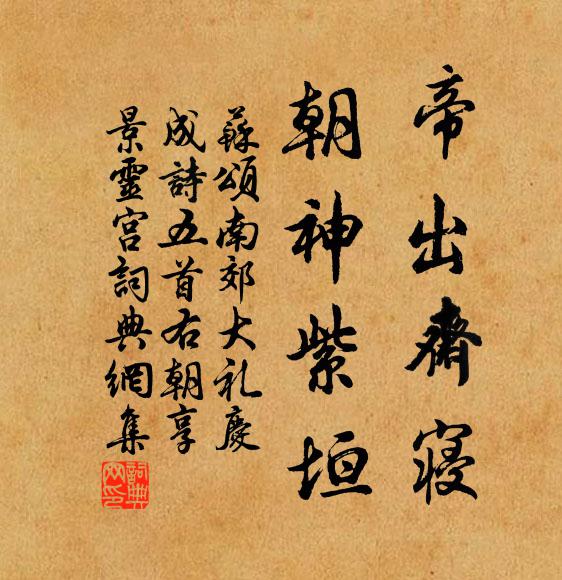 帝出齋寢
朝神紫垣
蘇頌南郊大礼慶
成詩五首右朝享
景靈宮詞典網集
詞典网印